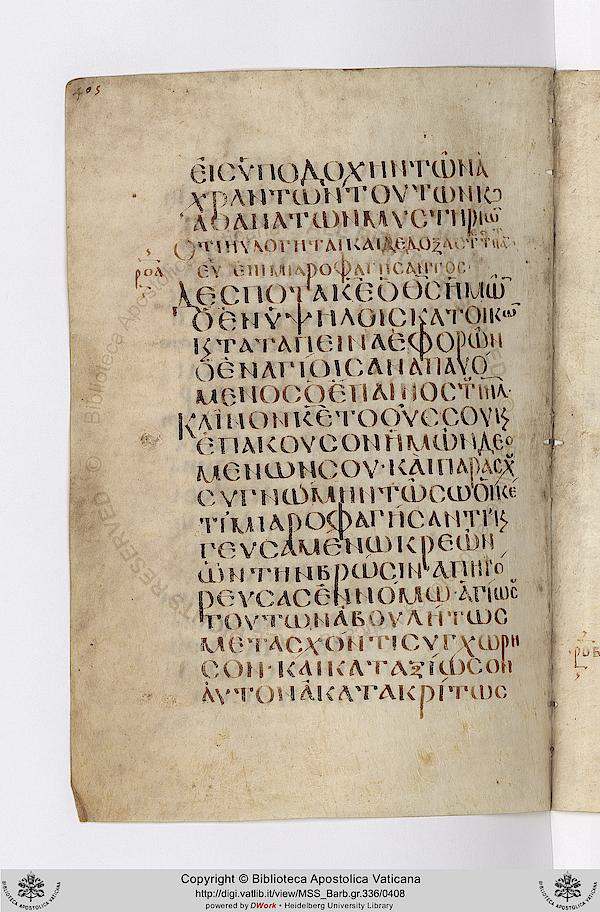 405
ΕΙΣΥΠΟΔΟΧΗΝΤΩΝΑ
ΧΡΑΝΤΩΝΤΟΥΤΩΝΚ
ΑΘΑΝΑΤΩΝΜΥΣΤΗΡΙω
ΟΤΙΗΥΛΟΓΗΤΑΙΚΑΙΔΕΔΟΞΑΣΤ
ροα ΕΥ ΕΠΙΜΙΑΡΟΦΑΓΗΣΑΝΤΟΣ
ΔΕΣΠΟΤΑΚΕΟΘΣΗΜω
ΟΕΝΥΨΗΛΟΙΣΚΑΤΟΙΚω
ΚΤΑΤΑΠΕΙΝΑΕΦΟΡΩΝ
ΟΕΝΑΓΙΟΙΣΑΝΑΠΑΥΟ
ΜΕΝΟΣΟΕΠΑΙΝΟΣΤΙΗΛ·
ΚΛΙΝΟΝΚΕΤΟΟΥΣΣΟΥΚ
ΕΠΑΚΟΥΣΟΝΗΜΩΝΔΕΟ
ΜΕΝΩΝΣΟΥ·ΚΑΙΠΑΡΑΣΧ
ΣΥΓΝΩΜΗΝΤΩΣΩΔΙΚΕ
ΤΙΜΙΑΡΟΦΑΓΗΣΑΝΤΙΚ
ΓΕΥΣΑΜΕΝΩΚΡΕΩΝ
ΩΝΤΗΝΒΡΩΣΙΝ·ΑΠΗΓΟ
ΡΕΥΣΑΣΕΝΝΟΜΩ·ΑΓΙΩΣ
ΤΟΥΤΩΝΑΒΟΥΛΗΤΩΣ
ΜΕΤΑΣΧΟΝΤΙΣΥΓΧΩΡΗ
ΣΟΝ·ΚΑΙΚΑΤΑΞΙΩΣΟΝ
ΑΥΤΟΝΑΚΑΤΑΚΡΙΤΩΣ
ροβ
Copyright © Biblioteca Apostolica Vaticana
http://digi.vatlib.it/view/MSS_Barb.gr.336/0408
powered by DWork • Heidelberg University Library